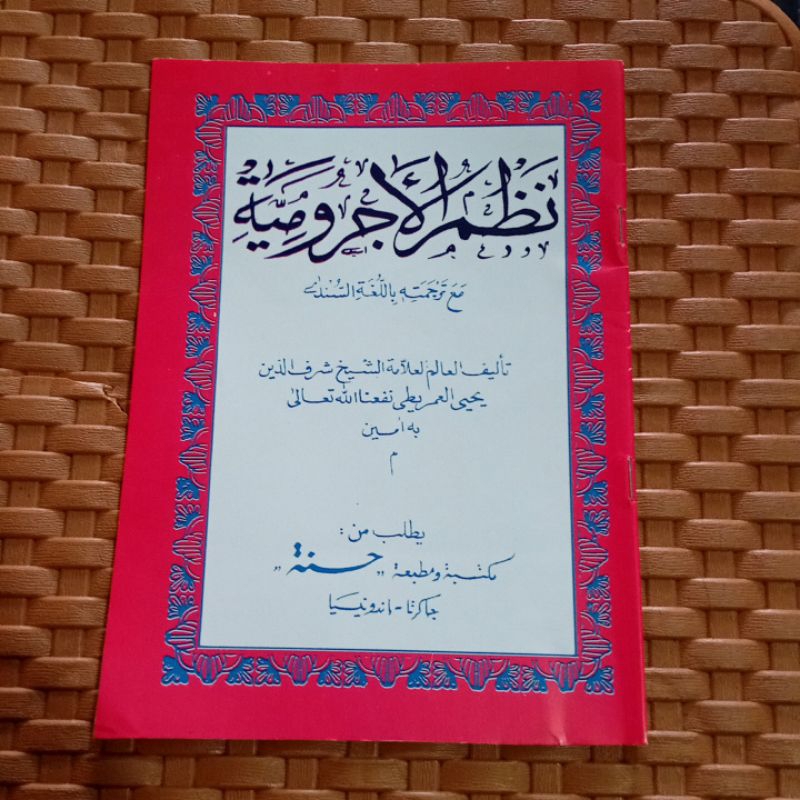 نَظْمُ الْأَجْرُومِيَّةِ
مَعَ تَرْجَمَتِهِ بِاللُّغَةِ السُّنْدٰى
تأليف العالم لعلامة الشيخ شرف الدين
يحيى العمريطى نفعنا الله تعالى
به امين
م
يطلب من :
مكتبة ومطبعة „حسنة„
جاكرتا - اندونيسيا